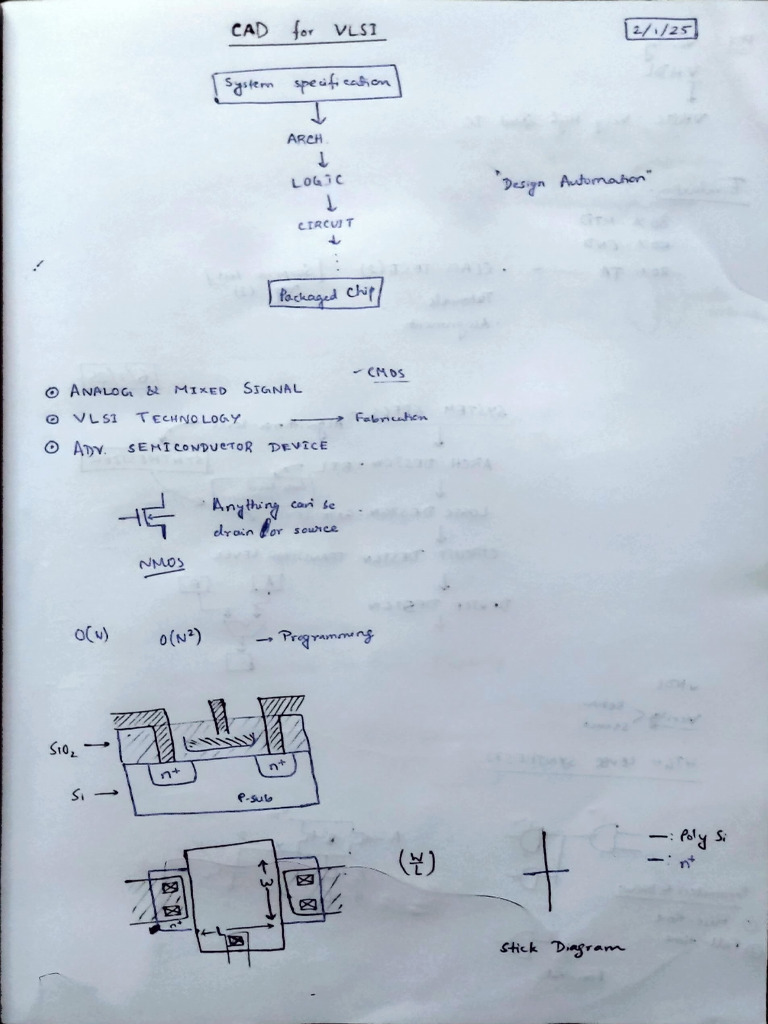 CAD for VLSI
2/1/25
System specification
ARCH.
LOGIC
"Design Automation"
CIRCUIT
Packaged Chip
- CMOS
ANALOG & MIXED SIGNAL
VLSI TECHNOLOGY → Fabrication
ADV. SEMICONDUCTOR DEVICE
Anything can be
drain for source
NMOS
O(N²) → Programming
SiO₂ →
n+ n+
Si →
P-sub
(W/L)
—: Poly Si
—: n+
W
n+
L
Stick Diagram